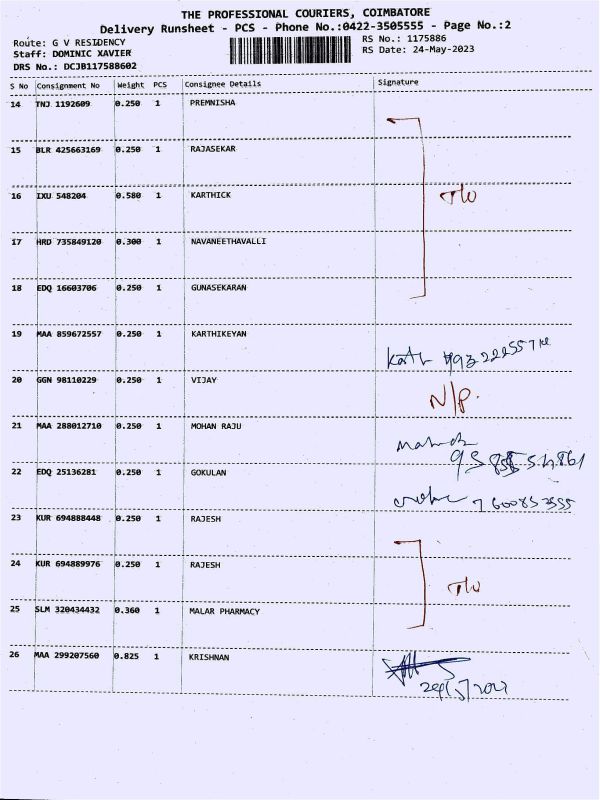 THE PROFESSIONAL COURIERS, COIMBATORE
Delivery Runsheet - PCS - Phone No.:0422-3505555 - Page No.:2
Route: G V RESIDENCY
RS No.: 1175886
Staff: DOMINIC XAVIER
RS Date: 24-May-2023
DRS No.: DCJB117588602
S No Consignment No Weight PCS Consignee Details Signature
14 TNJ 1192609 0.250 1 PREMNISHA
15 BLR 425663169 0.250 1 RAJASEKAR
16 IXU 548204 0.580 1 KARTHICK
17 HRD 735849120 0.300 1 NAVANEETHAVALLI
18 EDQ 16603706 0.250 1 GUNASEKARAN
19 MAA 859672557 0.250 1 KARTHIKEYAN
20 GGN 98110229 0.250 1 VIJAY N/P.
21 MAA 288012710 0.250 1 MOHAN RAJU
22 EDQ 25136281 0.250 1 GOKULAN
23 KUR 694888448 0.250 1 RAJESH
24 KUR 694889976 0.250 1 RAJESH
25 SLM 320434432 0.360 1 MALAR PHARMACY
26 MAA 299207560 0.825 1 KRISHNAN